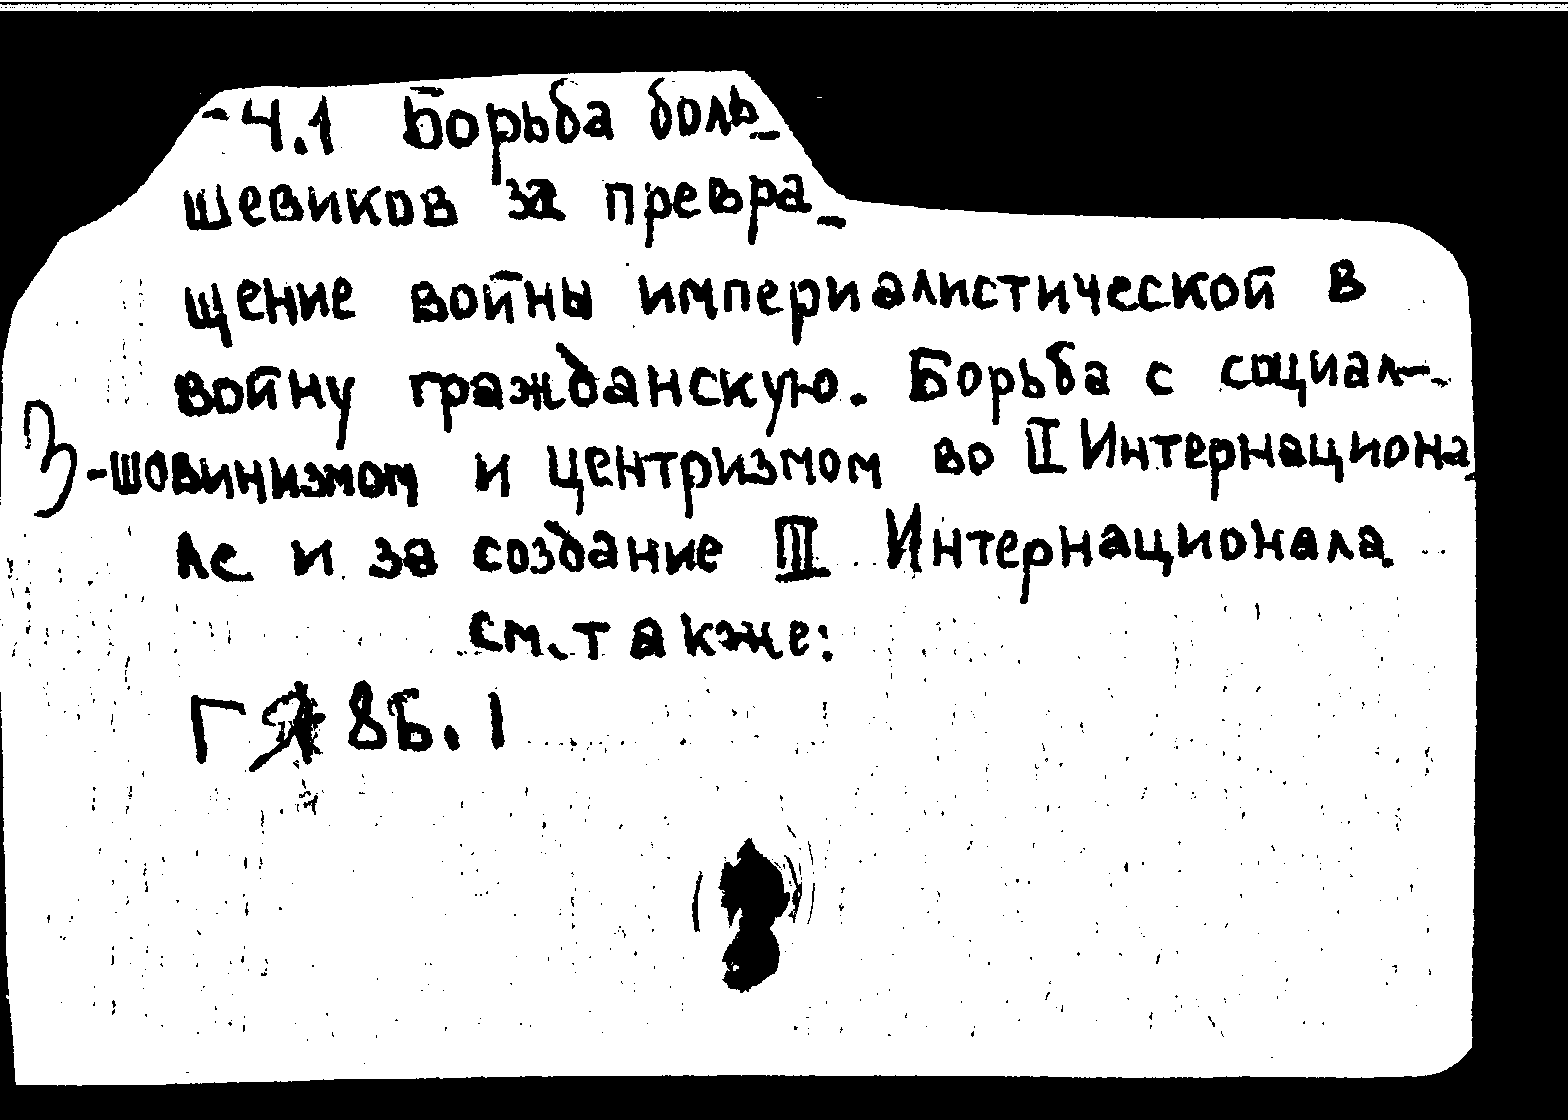 -4.1 Борьба боль-
шевиков за превра-
щение войны империалистической в
войну гражданскую. Борьба с социал-
-шовинизмом и центризмом во II Интернациона
ле и за создание III Интернационала
см. также:
Г 8Б.1